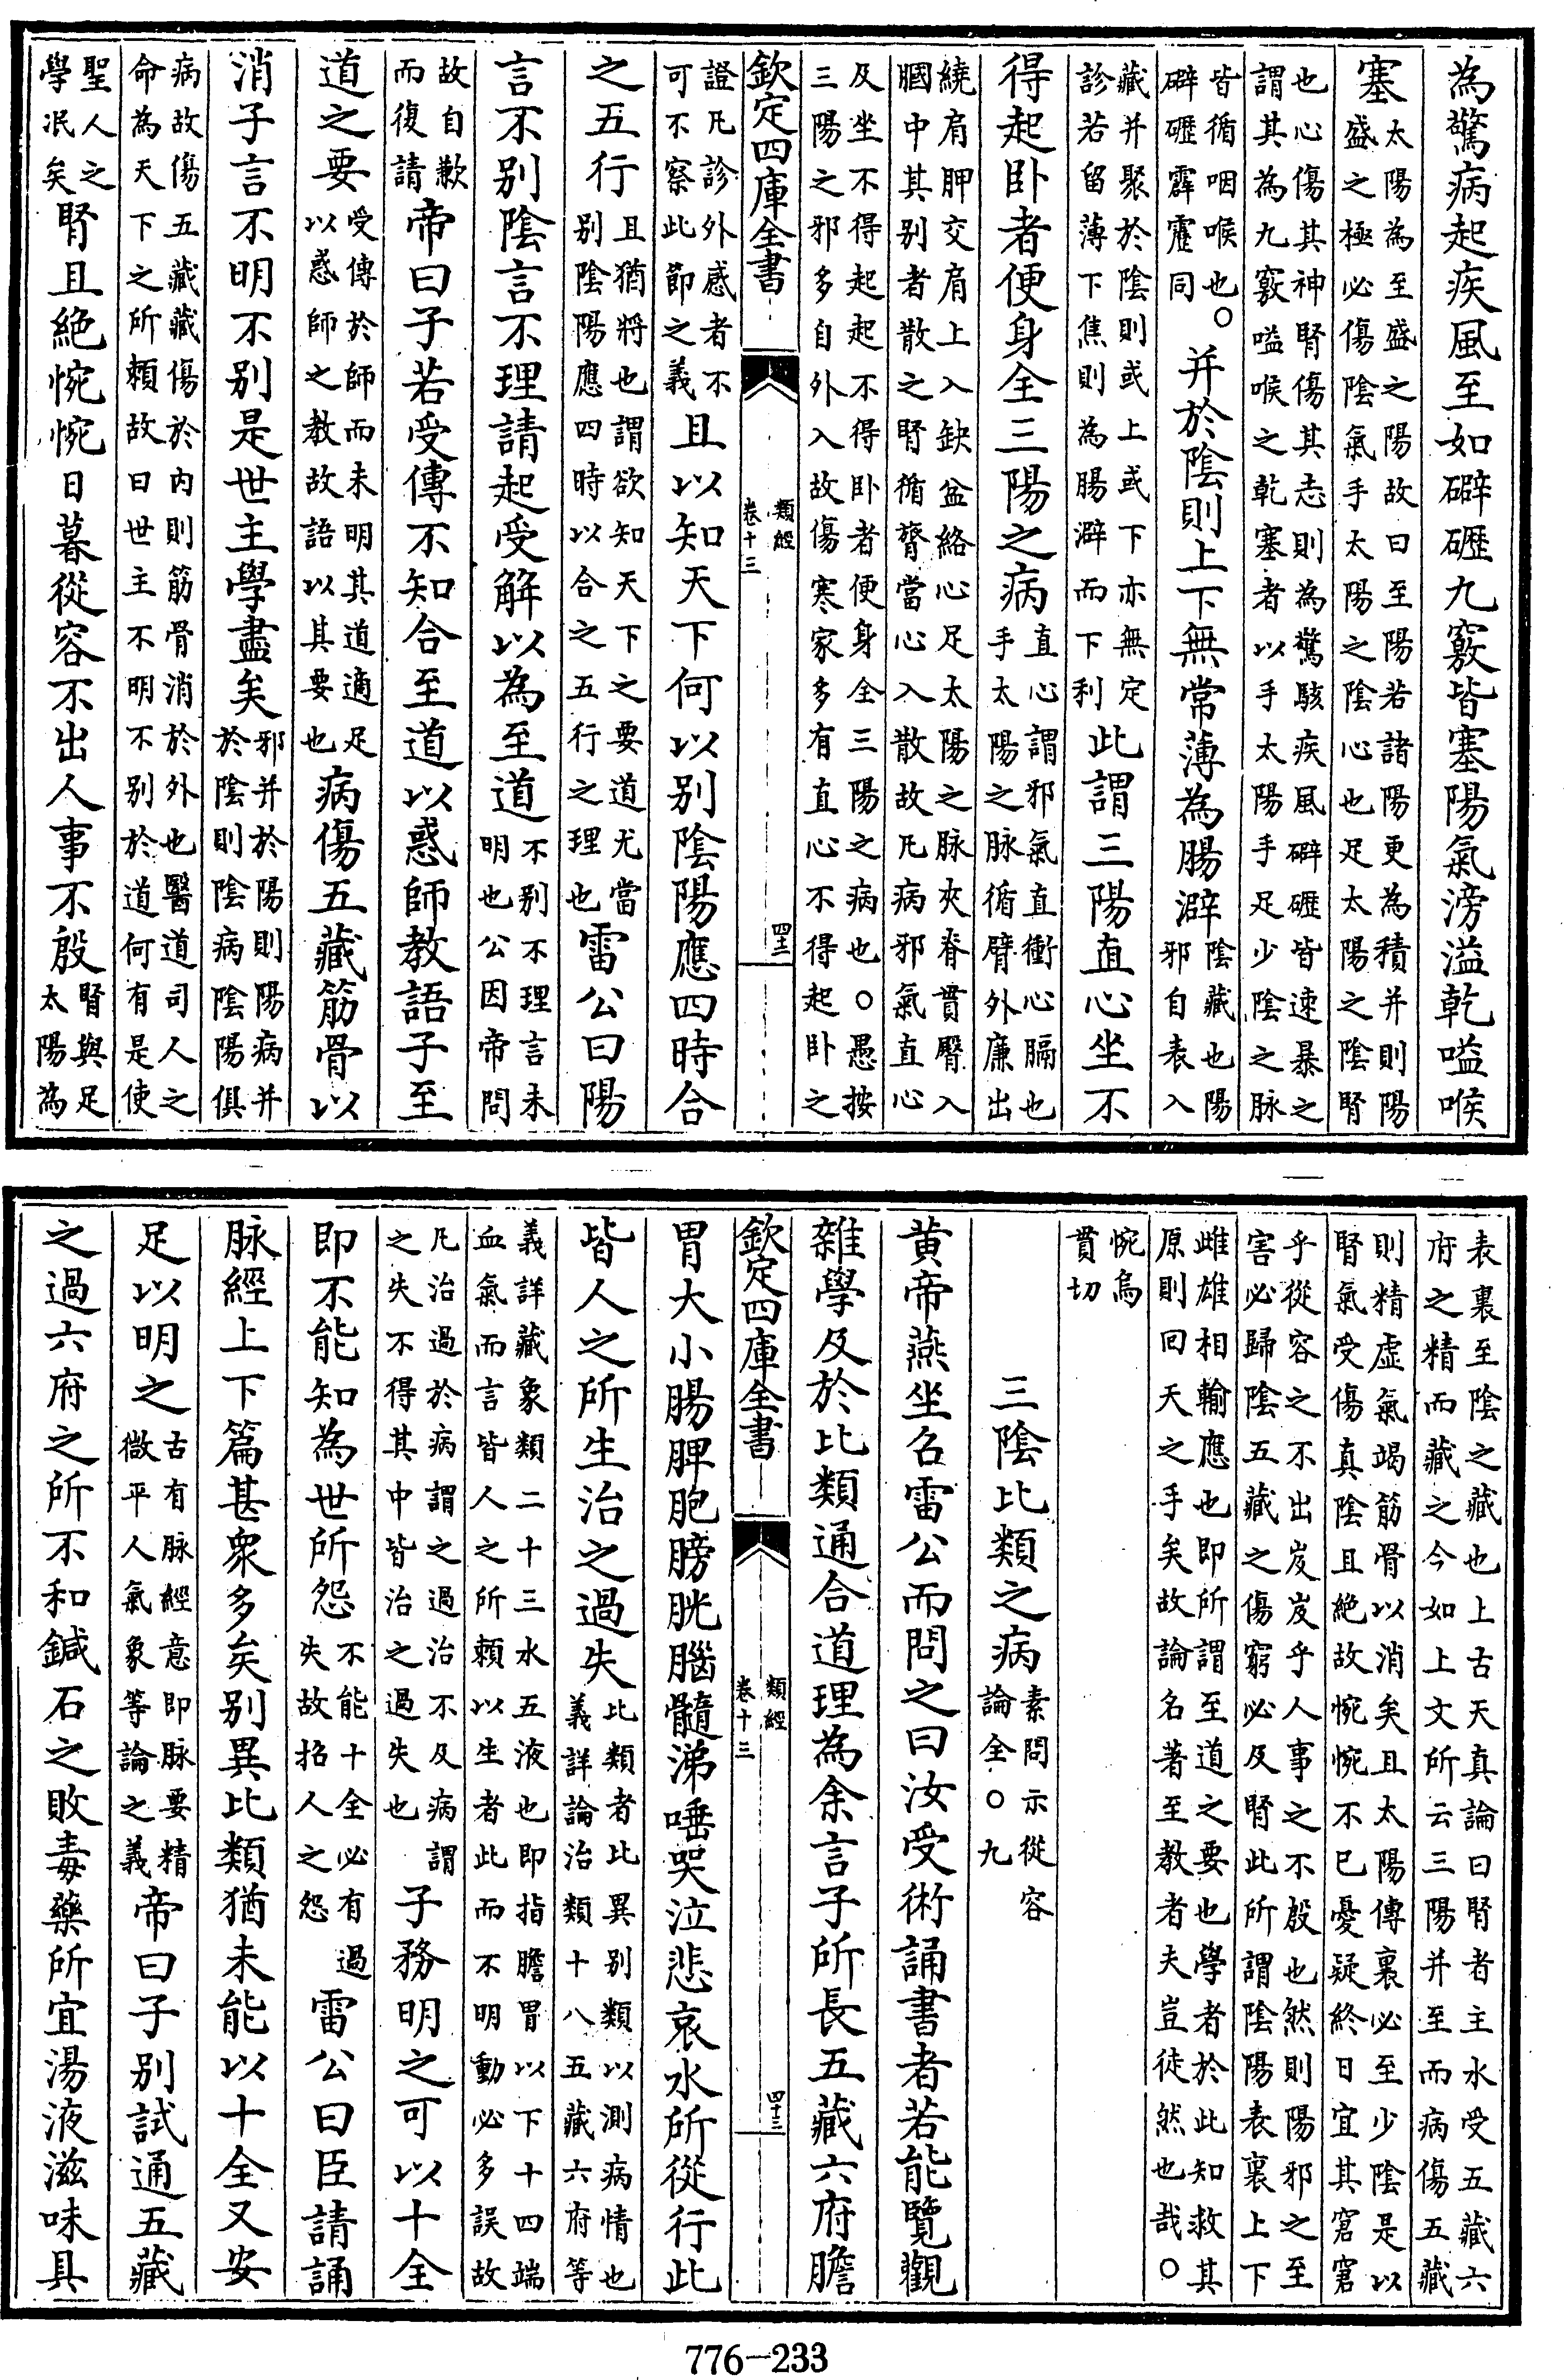 為驚病起疾風至如礔礰九竅皆塞陽氣滂溢乾嗌喉
塞太陽為至盛之陽故曰至陽若諸陽更為積并則陽盛之極必傷陰氣手太陽之陰心也足太陽之陰腎
也心傷其神腎傷其志則為驚駭疾風礔礰皆速暴之謂其為九竅嗌喉之乾塞者以手太陽手足少陰之脉
皆循咽喉也。礔礰霹靂同并於陰則上下無常薄為腸澼陰藏也陽邪自表入
藏并聚於陰則或上或下亦無定診若留薄下焦則為腸澼而下利此謂三陽直心坐不
得起卧者便身全三陽之病直心謂邪氣直衝心膈也手太陽之脉循臂外廉出
繞肩胛交肩上入缺盆絡心足太陽之脉夾脊貫臀入膕中其别者散之腎循膂當心入散故凡病邪氣直心
及坐不得起起不得卧者便身全三陽之病也。愚按三陽之邪多自外入故傷寒家多有直心不得起卧之
欽定四庫全書 類經 卷十三 四十二
證凡診外感者不可不察此節之義且以知天下何以别陰陽應四時合
之五行且猶將也謂欲知天下之要道尤當别陰陽應四時以合之五行之理也雷公曰陽
言不别陰言不理請起受解以為至道不别不理言未明也公因帝問
故自歉而復請帝曰子若受傳不知合至道以惑師教語子至
道之要受傳於師而未明其道適足以惑師之教故語以其要也病傷五藏筋骨以
消子言不明不别是世主學盡矣邪并於陽則陽病并於陰則陰病陰陽俱
病故傷五藏藏傷於内則筋骨消於外也醫道司人之命為天下之所賴故曰世主不明不别於道何有是使
聖人之學泯矣腎且絶惋惋日暮從容不出人事不殷腎與足太陽為
表裏至陰之藏也上古天真論曰腎者主水受五藏六府之精而藏之今如上文所云三陽并至而病傷五藏
則精虚氣竭筋骨以消矣且太陽傳裏必至少陰是以腎氣受傷真陰且絶故惋惋不已憂疑終日宜其窘窘
乎從容之不出岌岌乎人事之不殷也然則陽邪之至害必歸陰五藏之傷窮必及腎此所謂陰陽表裏上下
雌雄相輸應也即所謂至道之要也學者於此知救其原則回天之手矣故論名著至教者夫豈徒然也哉。
惋烏貫切
三陰比類之病素問示從容論全。九
黄帝燕坐召雷公而問之曰汝受術誦書者若能覽觀
雜學及於比類通合道理為余言子所長五藏六府膽
欽定四庫全書 類經 卷十三 四十三
胃大小腸脾胞膀胱腦髓涕唾哭泣悲哀水所從行此
皆人之所生治之過失比類者比異别類以測病情也義詳論治類十八五藏六府等
義詳藏象類二十三水五液也即指膽胃以下十四端血氣而言皆人之所賴以生者此而不明動必多誤故
凡治過於病謂之過治不及病謂之失不得其中皆治之過失也子務明之可以十全
即不能知為世所怨不能十全必有過失故招人之怨雷公曰臣請誦
脉經上下篇甚衆多矣别異比類猶未能以十全又安
足以明之古有脉經意即脉要精微平人氣象等論之義帝曰子别試通五藏
之過六府之所不和鍼石之敗毒藥所宜湯液滋味具
776-233